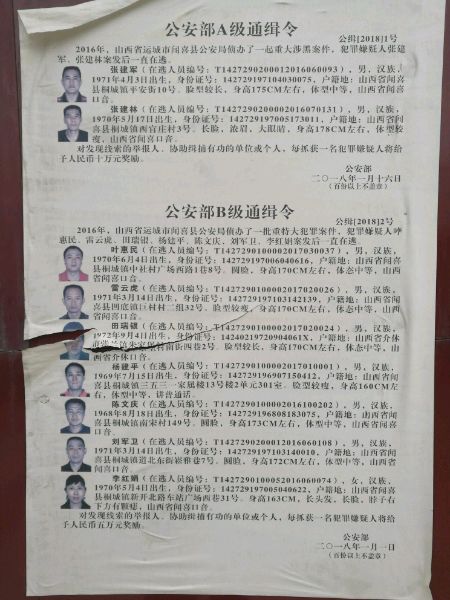 公安部A级通缉令
公缉[2018]1号
2016年，山西省运城市闻喜县公安局侦办了一起重大涉黑案件，犯罪嫌疑人张建
军、张建林案发后一直在逃。
张建军（在逃人员编号：T1427290200012016060093），男，汉族，
1971年4月3日出生，身份证号：142729197104030075，户籍地：山西省闻喜
县桐城镇平安街10号。脸型较长，身高175CM左右，体型中等，山西省
闻喜口音。
张建林（在逃人员编号：T1427290200002016070131），男，汉族，
1970年5月17日出生，身份证号：142729197005173011，户籍地：山西省闻喜
县桐城镇西官庄村3号。长脸，浓眉，大眼睛，身高178CM左右，体型较
瘦，山西省闻喜口音。
对发现线索的举报人、协助缉捕有功的单位或个人，每抓获一名犯罪嫌疑人将给
予人民币十万元奖励。
公安部
二〇一八年一月十六日
（百份以上不盖章）
公安部B级通缉令
公缉[2018]2号
2016年，山西省运城市闻喜县公安局侦办了一批重特大犯罪案件，犯罪嫌疑人叶
惠民、雷云虎、田瑞银、杨建平、陈文庆、刘军卫、李红娟案发后一直在逃。
叶惠民（在逃人员编号：T1427290100002017030037），男，汉族，
1970年6月4日出生，身份证号：142729197006040616，户籍地：山西省闻喜
县桐城镇中社村广场西路1巷8号。圆脸，身高170CM左右，体态中等，山西
省闻喜口音。
雷云虎（在逃人员编号：T1427290100002017020026），男，汉族，
1971年3月14日出生，身份证号：142729197103142139，户籍地：山西省闻喜
县凹底镇 村村二组32号。脸型较瘦，身高170CM左右，体态中等，山西
省闻喜口音。
田瑞银（在逃人员编号：T1427290100002017020024），男，汉族，
1972年9月4日出生，身份证号：14240219720904061X，户籍地：山西省介休
村南街西巷2号。脸型较长，身高170CM左右，体态中等，山西
省介休口音。
杨建平（在逃人员编号：T1427290100002017010001），男，汉族，
1969年7月15日出生，身份证号：142729196907150412，户籍地：山西省闻
喜县桐城镇三五三一家属楼13号楼2单元301室。脸型较瘦，身高160CM左
右，体型中等，讲普通话。
陈文庆（在逃人员编号：T1427290100002016100202），男，汉族，
1968年8月18日出生，身份证号：142729196808183075，户籍地：山西省闻
喜县桐城镇南宋村149号。圆脸，身高173CM左右，体型中等，山西省闻喜口
音。
刘军卫（在逃人员编号：T1427290200012016060108），男，汉族，
1971年3月14日出生，身份证号：142729197103140010，户籍地：山西省闻喜
县桐城镇道北东街崭雅巷7号。圆脸，身高172CM左右，体型中等，山西省闻
喜口音。
李红娟（在逃人员编号：T1427290100052016060074），女，汉族，
1970年5月4日出生，身份证号：142729197005040622，户籍地：山西省闻喜
县桐城镇新开北路车站广场西巷31号。身高163CM，长头发，长脸，脖子右
下方有颗痣，山西省闻喜口音。
对发现线索的举报人、协助缉捕有功的单位或个人，每抓获一名犯罪嫌疑人将给
予人民币五万元奖励。
公安部
二〇一八年一月一日
（百份以上不盖章）